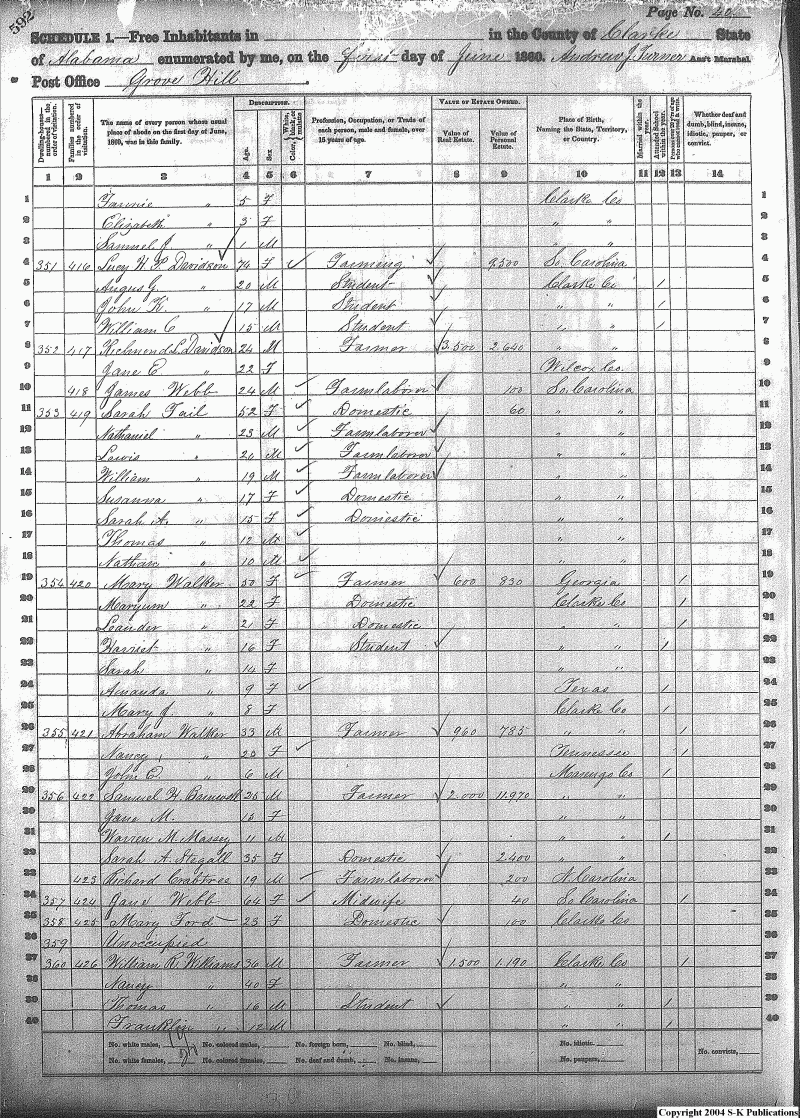 592
Page No. 40
SCHEDULE 1.—Free Inhabitants in in the County of Clarke State
of Alabama enumerated by me, on the first day of June 1860. Andrew J. Turner Ass't Marshal.
Post Office Grove Hill
Dwelling-houses—numbered in the order of visitation.
Families numbered in the order of visitation.
The name of every person whose usual place of abode on the first day of June, 1860, was in this family.
DESCRIPTION.
Age.
Sex
Color, White, black, or mulatto
Profession, Occupation, or Trade of each person, male and female, over 15 years of age.
VALUE OF ESTATE OWNED.
Value of Real Estate.
Value of Personal Estate.
Place of Birth, Naming the State, Territory, or Country.
Married within the year.
Attended School within the year.
Persons over 20 y'rs of age who cannot read & write.
Whether deaf and dumb, blind, insane, idiotic, pauper, or convict.
1 2 3 4 5 6 7 8 9 10 11 12 13 14
1 Fannie " 5 F Clarke Co 1
2 Elizabeth " 3 F " " 2
3 Samuel J. " 1 M " " 3
4 351 416 Lucy W. P. Davidson 74 F ✓ Farming ✓ 9,500 So. Carolina 4
5 Angus G. " 20 M Student ✓ Clarke Co / 5
6 John K. " 17 M Student ✓ " " / 6
7 William C " 15 M Student ✓ " " / 7
8 352 417 Richmond L. Davidson 24 M Farmer ✓ 3.500 2.640 " " 8
9 Jane E " 22 F Wilcox Co. 9
10 418 James Webb 24 M ✓ Farmlaborer ✓ 100 So. Carolina 10
11 353 419 Sarah Tail 52 F ✓ Domestic 60 " " 11
12 Nathaniel " 23 M ✓ Farmlaborer ✓ " " 12
13 Lewis " 20 M ✓ Farmlaborer ✓ " " 13
14 William " 19 M ✓ Farmlaborer ✓ " " 14
15 Susanna " 17 F ✓ Domestic " " 15
16 Sarah A. " 15 F ✓ Domestic " " 16
17 Thomas " 12 M ✓ " " 17
18 Nathan " 10 M ✓ " " 18
19 354 420 Mary Walker 50 F ✓ Farmer ✓ 600 830 Georgia / 19
20 Maryum " 22 F Domestic Clarke Co / 20
21 Leander " 21 F Domestic " " / 21
22 Harriet " 16 F Student ✓ " " / 22
23 Sarah " 14 F " " 23
24 Amanda " 9 F ✓ Texas / 24
25 Mary J. " 8 F Clarke Co / 25
26 355 421 Abraham Walker 33 M Farmer ✓ 960 785 " " / 26
27 Nancy " 20 F ✓ Tennessee / 27
28 John E. " 6 M Marengo Co / 28
29 356 422 Samuel H. 35 M Farmer ✓ 2.000 11.970 " " 29
30 Jane M. 15 F " " 30
31 Warren M. Massey 11 M " " / 31
32 Sarah A. Stegall 35 F Domestic 2.400 " " 32
33 423 Richard Crabtree 19 M ✓ Farmlaborer ✓ 200 N. Carolina 33
34 357 424 Jane Webb 64 F ✓ Midwife 40 So Carolina / 34
35 358 425 Mary Ford 23 F Domestic ✓ 100 Clarke Co 35
36 359 Unoccupied 36
37 360 426 William R. Williams 36 M Farmer ✓ 1.500 1.190 Clarke Co / 37
38 Nancy " 40 F " " 38
39 Thomas " 16 M Student ✓ " " / 39
40 Franklin " 12 M " " / 40
No. white males, No. colored males, No. foreign born, No. blind, No. idiotic, No. convicts,
No. white females, No. colored females, No. deaf and dumb, No. insane, No. paupers,
Copyright 2004 S-K Publications